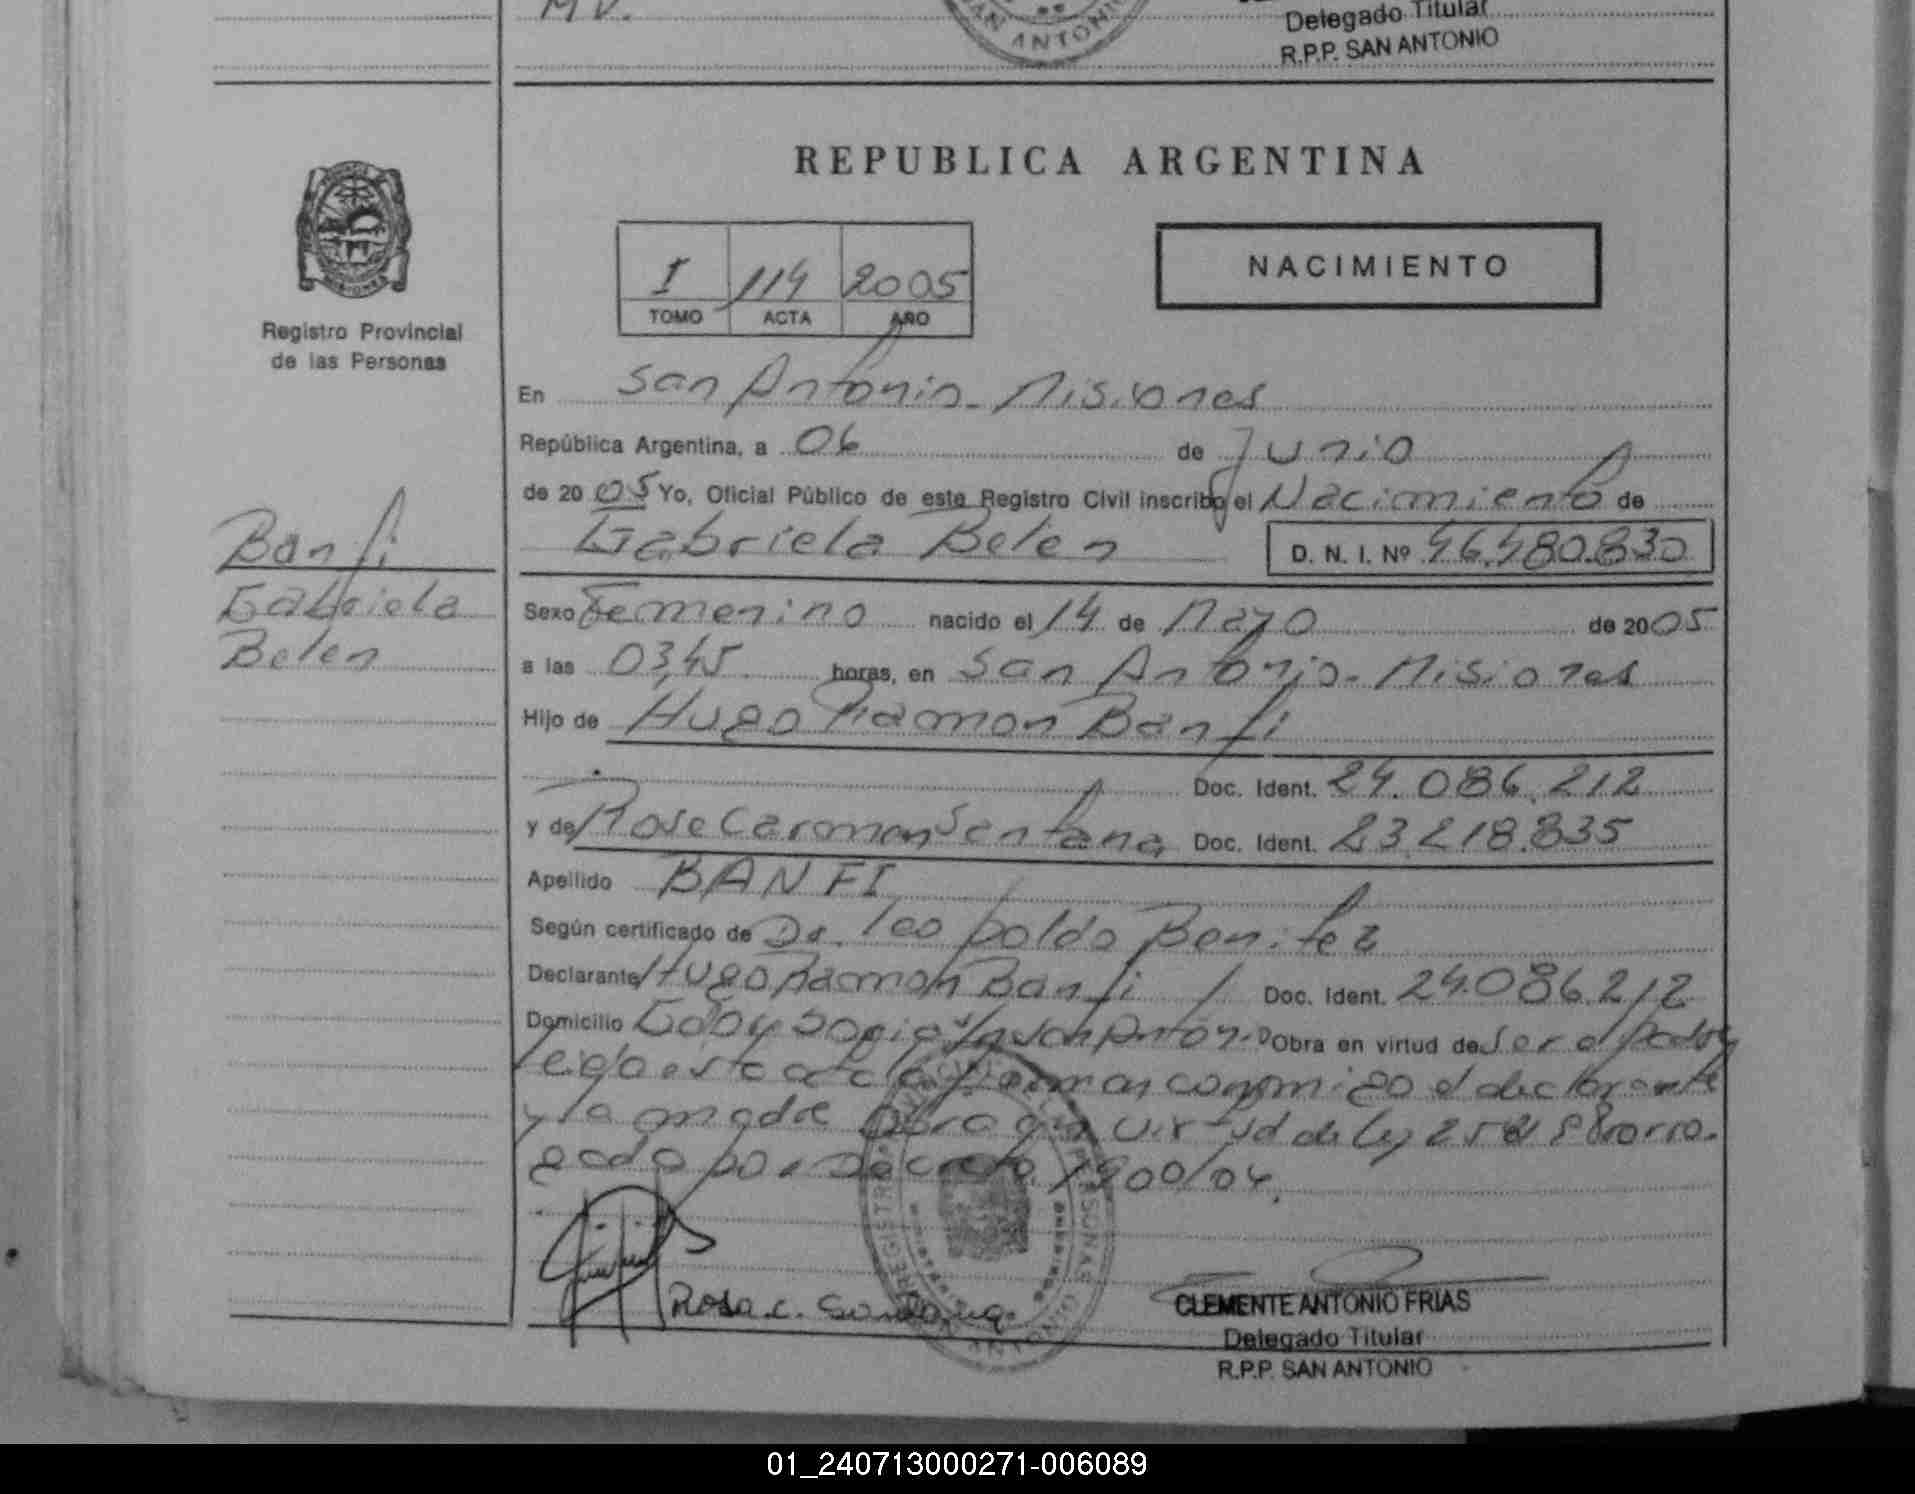 MV.
SAN ANTONIO
Delegado Titular
R.P.P. SAN ANTONIO
REPUBLICA ARGENTINA
I 114 2005
TOMO ACTA AÑO
NACIMIENTO
Registro Provincial
de las Personas
En San Antonio - Misiones
República Argentina, a 06 de Junio
de 2005 Yo, Oficial Público de este Registro Civil inscribo el Nacimiento de
Gabriela Belen D. N. I. Nº 46.480.830
Banfi
Gabriela
Belen
Sexo Femenino nacido el 14 de Mayo de 2005
a las 03,45 horas, en San Antonio - Misiones
Hijo de Hugo Ramon Banfi
Doc. Ident. 24.086.212
y de Rosa Carmen Santana Doc. Ident. 23.218.835
Apellido BANFI
Según certificado de Dr. Leopoldo Benitez
Declarante Hugo Ramon Banfi / Doc. Ident. 24.086.212
Domicilio San Anton.º Obra en virtud de Ser el padre
leida esta acta firman conmigo el declarante
y la madre obra en virtud de ley prorro-
gada por Decreto 1900/04.
Rosa C. Santana
CLEMENTE ANTONIO FRIAS
Delegado Titular
R.P.P. SAN ANTONIO
01_240713000271-006089